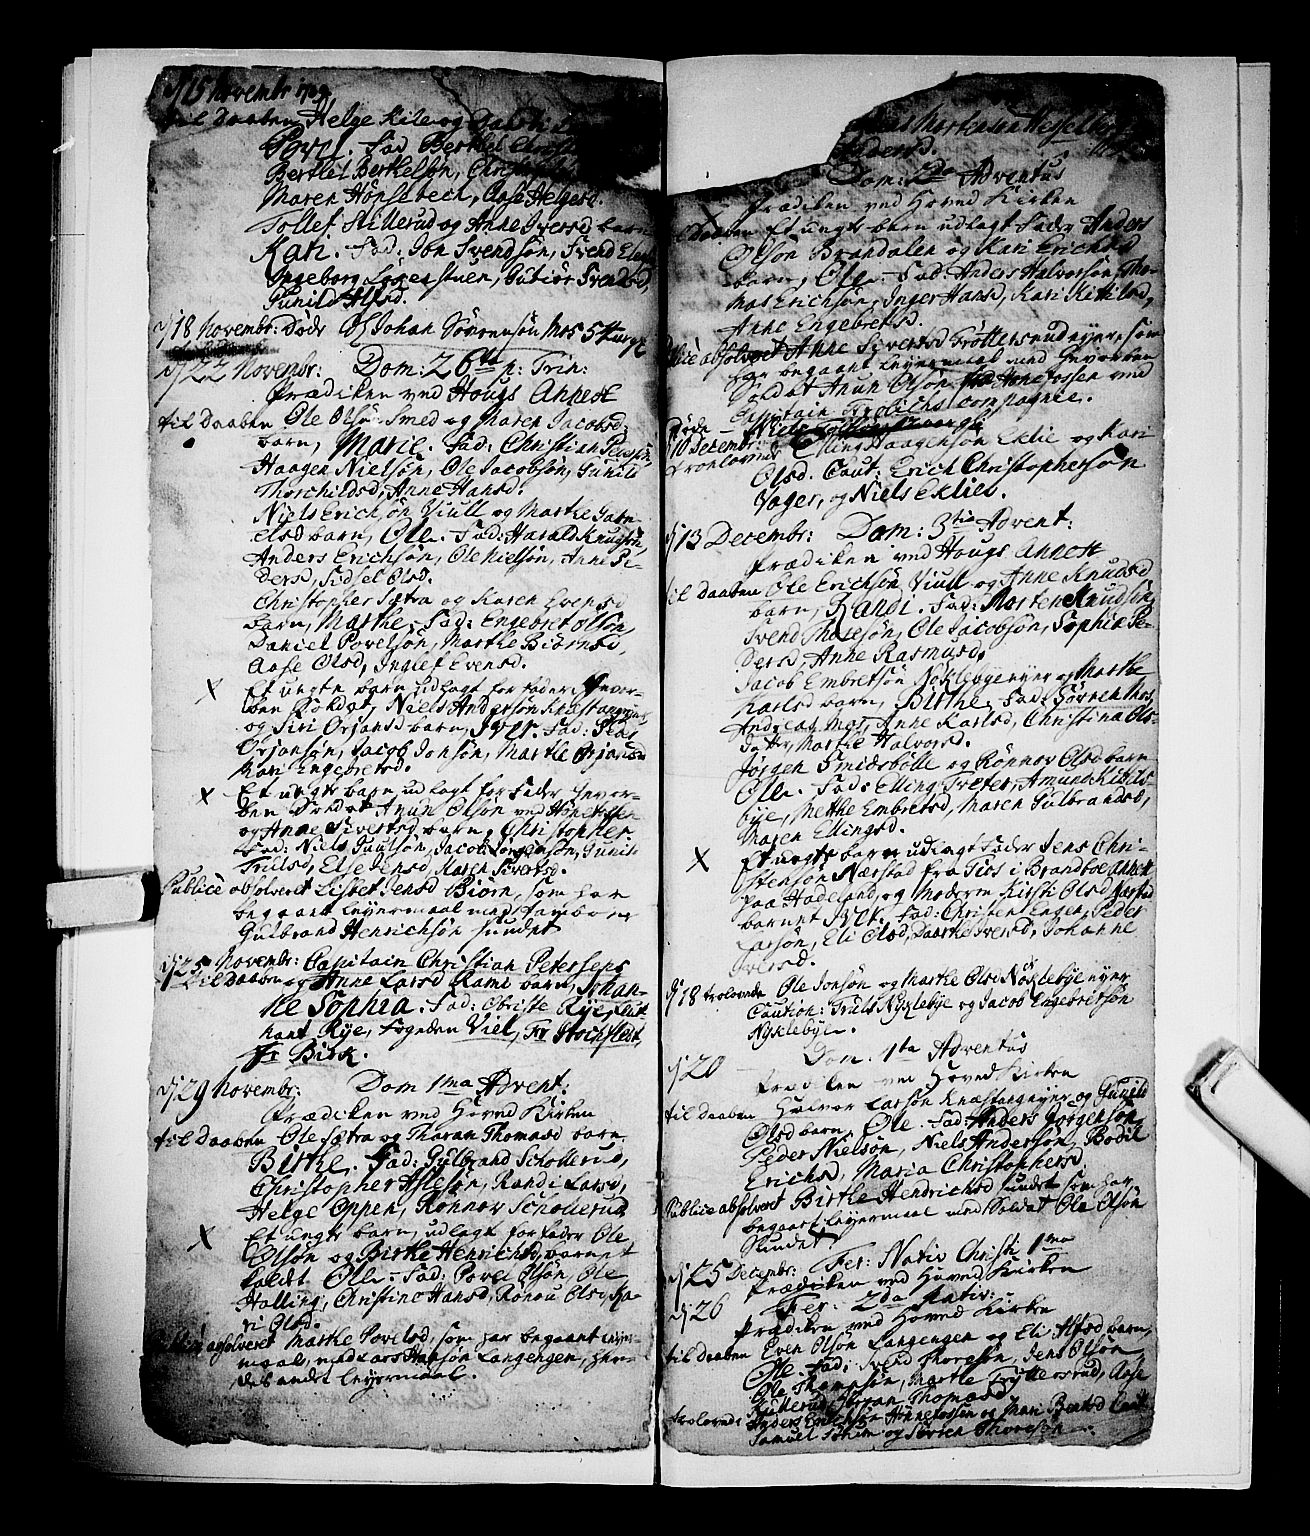 15 Novembr
til Daaben Helge Kile og
Povel. Fad: Berthel Christ
Berthel Berthelsøn,
Maren Hønsebech, Aase Helgesd.
Tollef Hillerud og Anne Iversd barn
Kari. Fad: Jon Svendsøn, Svend
Ingeborg, Gubiør Svendsd,
Gunild Alfsd.
d/18 Novembr: Døde Johan Sørensøn Moss
d/22 Novembr: Dom: 26ta p: Trin:
Prædiken ved Hougs Annext
til Daaben Ole Olsøn Smed og Maren Jacobsd
barn, Marie. Fad: Christian Petersen
Haagen Nielsøn, Ole Jacobsøn, Gunild
Thorchildsd, Anne Hansd.
Niels Erichsøn Viull og Marthe Gabri
elsd barn, Ole. Fad: Harald Knudsøn,
Anders Erichsøn, Ole Nielsøn, Anne Pe-
dersd, Sidsel Olsd.
Christopher Sætra og Karen Evensd
barn, Marthe. Fad: Engebret Olsøn,
Daniel Povelsøn, Marthe Biørnsd,
Aase Olsd, Inglef Evensd.
Et uægte barn udlagt for fader Gevor-
ben Soldat, Niels Andersøn Knæstangeyer
og Siri Orjansd barn, Iver. Fad:
Orjansøn, Jacob Jonsøn, Marthe Orjansd
Kari Engebretsd.
Et uægte barn udlagt for fader Gevor-
ben Soldat Anun Olsøn ved Hønefossen
og Anne Sivertsd barn, Christopher.
Fad: Niels Juulsøn, Jacob Jørgensøn, Gunil
Trulsd, Else Jensd, Karen Sivertsd.
Publicè absolveret Lisbet Jensd Biørn, som har
begaaet Leyermaal med Tambour
Gulbrand Henrichsøn Hundet
d/25 Novembr: Capitain Christian Petersens
til Daaben og Anne Larsd Rami barn, Johan-
ne Sophia. Fad: Christe Rye, Leut
nant Rye, Fogneden Viel, Fr Stochflest,
Fr Birk.
d/29 Novembr: Dom 1ma Advent:
Prædiken ved Hoved Kirken
til Daaben Ole Sætra og Tharan Thomasd barn
Birthe. Fad: Gulbrand Schollerud,
Christopher Aslesøn, Randi Larsd,
Helge Oppen, Rønnov Schollerud
Et uægte barn, udlagt for fader Ole
Olsøn og Birthe Henrichsd, barnet
kaldet Ole. Fad: Povel Olsøn, Ole
Halling, Christine Hansd, Ronau Olsd, Ka-
ri Olsd.
Publicè absolveret Marthe Povelsd, som har begaaet leyer-
maal, med Lars Hansøn Langengen,
det andet Leyermaal.
Mortensen
Andersd.
Dom: 2da Adventus
Prædiken ved Hoved Kirken
til Daaben Et uægte barn udlagt fader Anders
Olsøn Brandalen og Kari Erichsd
barn, Ole. Fad: Anders Halvorsøn, Tho-
mas Erichsøn, Inger Hansd, Kari Kittilsd,
Anne Engebretsd.
Publicè absolveret Anne Siverstd Trøttersrudeyer, som
har begaaet leyermaal med Gevorben
Soldat Anun Olsøn Hønefossen ved
Capitain Frølichs Compagnie.
Døde Niels
d/10 Decembr:
trolovede Elling Haagensøn Eklie og Kari
Olsd. Caut: Erich Christophersøn
Jager, og Niels Eklies.
d/13 Decembr: Dom: 3tia Advent:
Prædiken ved Hougs Annext
til Daaben Ole Erichsøn Viull og Anne Knudsd
barn, Randi. Fad: Morten Knudsøn,
Svend Thoresøn, Ole Jacobsøn, Sophia Pe-
dersd, Anne Rasmusd.
Jacob Embretsøn Nøklebyeeyer og Marthe
Karlsd barn, Birthe. Fad: Sørren Mos,
Andreas Mos, Anne Karlsd, Christina Ols-
datter, Marthe Halvorsd.
Jørgen Smidsbølle og Rønnov Olsd barn
Ole. Fad: Elling Treter, Amund Kihls-
bye, Methe Embretsd, Maren Gulbrandsd,
Maren Ellingsd.
Et uægte barn udlagt fader Jens Chri-
stensøn Nærstad fra Tios i Brandboe Annext
paa Hadeland, og Moderen Kirsti Olsd
barnet Iver. Fad: Christen Engen, Peder
Larsøn, Eli Olsd, Dorthe Iversd, Johanne
Iversd.
d/18 trolovede Ole Jonsøn og Marthe Olsd Nøklebyeeyer
Caution: Truls Nyklebye og Jacob Engebretsøn
Nyklebye.
d/20 Dom: 4ta Adventus
Prædiken ved Hoved Kirken
til Daaben Halvor Larsøn Knæstangeyer og Gunild
Olsd barn, Ole. Fad: Anders Jørgensøn
Peder Nielsøn, Niels Andersøn, Bodil
Erichsd, Maria Christophersd
Publicè absolveret Birthe Hendrichsd Hundet som har
begaaet leyermaal med Soldat Ole Olsøn
Hundet
d/25 Decembr: Fer: Nativ Christi 1ma
Prædiken ved Hoved Kirken
d/26 Fer: 2da Nativ:
Prædiken ved Hoved Kirken
til Daaben Even Olsøn Langengen og Eli Alfsd barn,
Ole. Fad: Svend Thorgsøn, Jens Olsøn
Ole Thomesøn, Marthe Trøttersrud, Aase
Hillerud, Joran Thomasd
trolovede Anders Erichsøn Hønnefossen og Mari Bentsd Caut
Samuel Schim og Sørren Thoresøn.